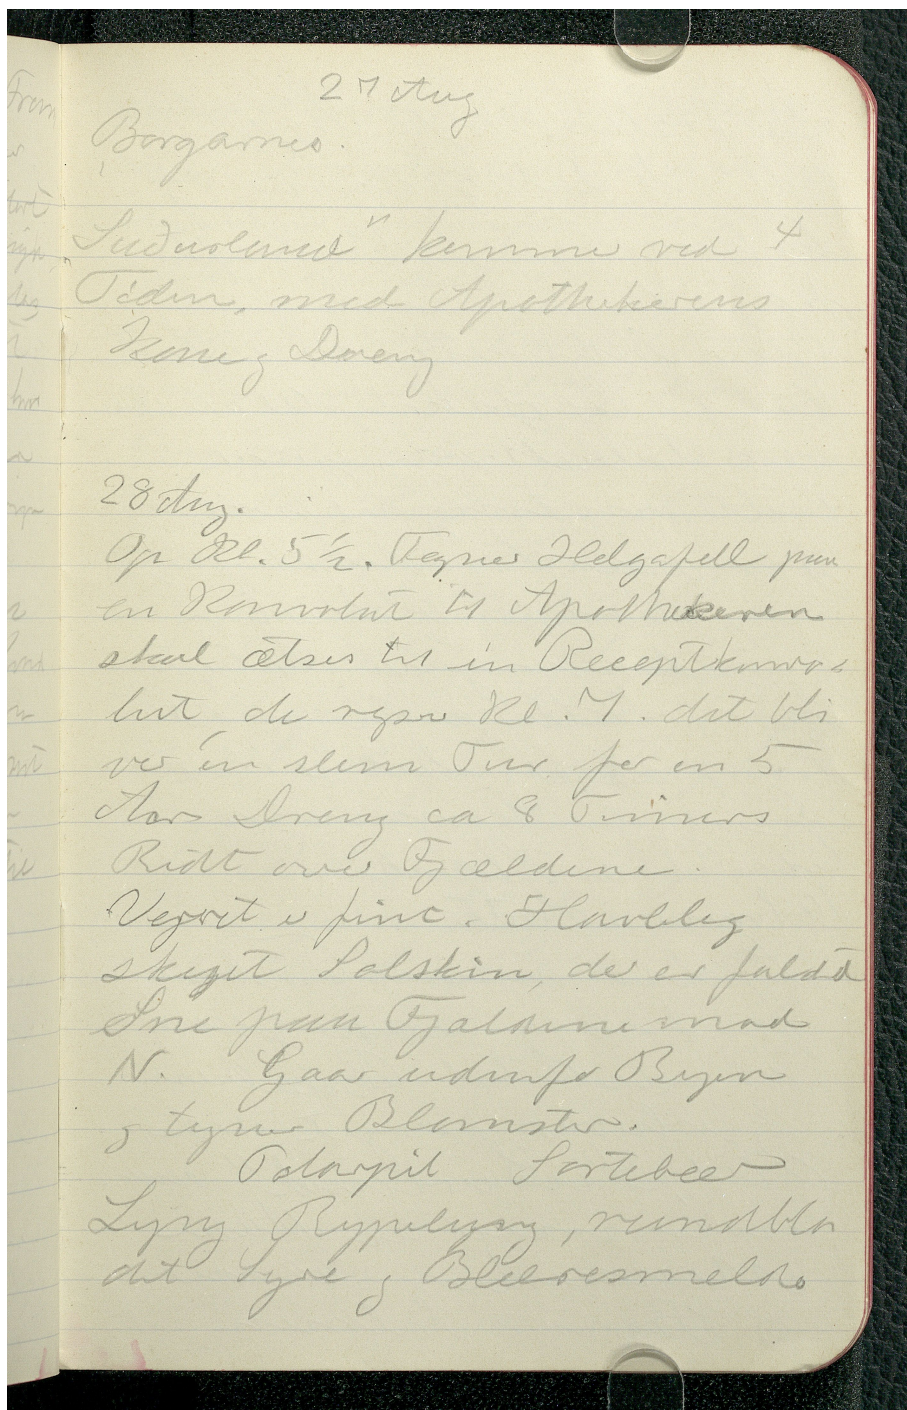 27 Aug
Borgarnes.
„Suðurland" kommer ved 4
Tiden, med Apothekerens
Kone og Dreng
28 Aug.
Op Kl. 5½. Tegner Helgafell paa
en Konvolut til Apothekeren
skal ætses til en Receptkonvo-
lut, de rejser Kl. 7. det bli
ver en slem Tur for en 5
Aars Dreng ca 8 Timers
Ridt over Fjældene.
Vejret er fint. Havblig
skyet Solskin, der er faldet
Sne paa Fjældene mod
N. Gaar udenfor Byen
og tegner Blomster.
Sortebær
Lyng Rypelyng, rundbla
det Syre og Blæresmelde